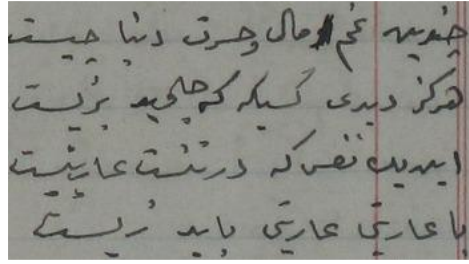 چندین غم مال و حسرت دنیا چیست
هرگز دیدی کسیکه جاوید بزیست
این یک نفس که در تنت عاریتیست
با عاریتی عاریتی باید زیست